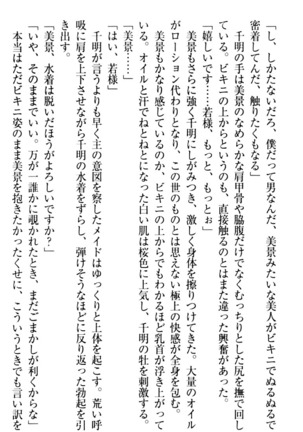 「し、しかたないだろ、僕だって男なんだ、美景みたいな美人がビキニでぬるぬるで
密着してんだ、触りたくもなる」
　千明の手は美景のなめらかな肩甲骨や脇腹だけでなくむっちりとした尻を撫で回し
ている。ビキニの上からというのも、直接触るのとはまた違った興奮があった。
「嬉しいです……若様、もっと、もっとぉ」
　美景もさらに強く千明にしがみつき、激しく身体を擦りつけてきた。大量のオイル
がローション代わりとなり、この世のものとは思えない極上の快感が全身を包む。
　美景もかなり感じているのか、ビキニの上からでもわかるほど乳首が浮き上がって
いる。オイルと汗でねとねとになった白い肌は桜色に上気し、千明の牡を刺激する。
「美景……」
「はい、若様」
　千明が言うよりも早く主の意図を察したメイドはゆっくりと上体を起こす。荒い呼
吸に肩を上下させながら千明の水着をずらし、弾けそうなほどに反り返った勃起を引
き出す。
「美景、水着は脱いだほうがよろしいですか？」
「いや、そのままでいい。万が一誰かに覗かれたとき、まだごまかしが利くからな」
　本当はただビキニ姿のまま美景を抱きたかったくせに、こういうときでも言い訳を